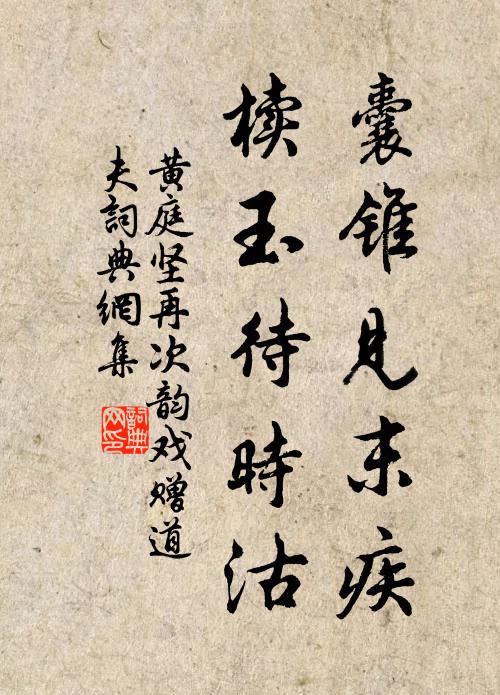 囊锥见末疾
椟玉待時沽
黄庭坚再次韵戏赠道
夫詞典網集
詞典
网印